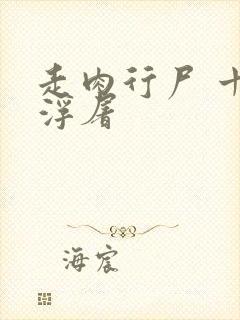 走肉行尸 十
浮屠
海宸